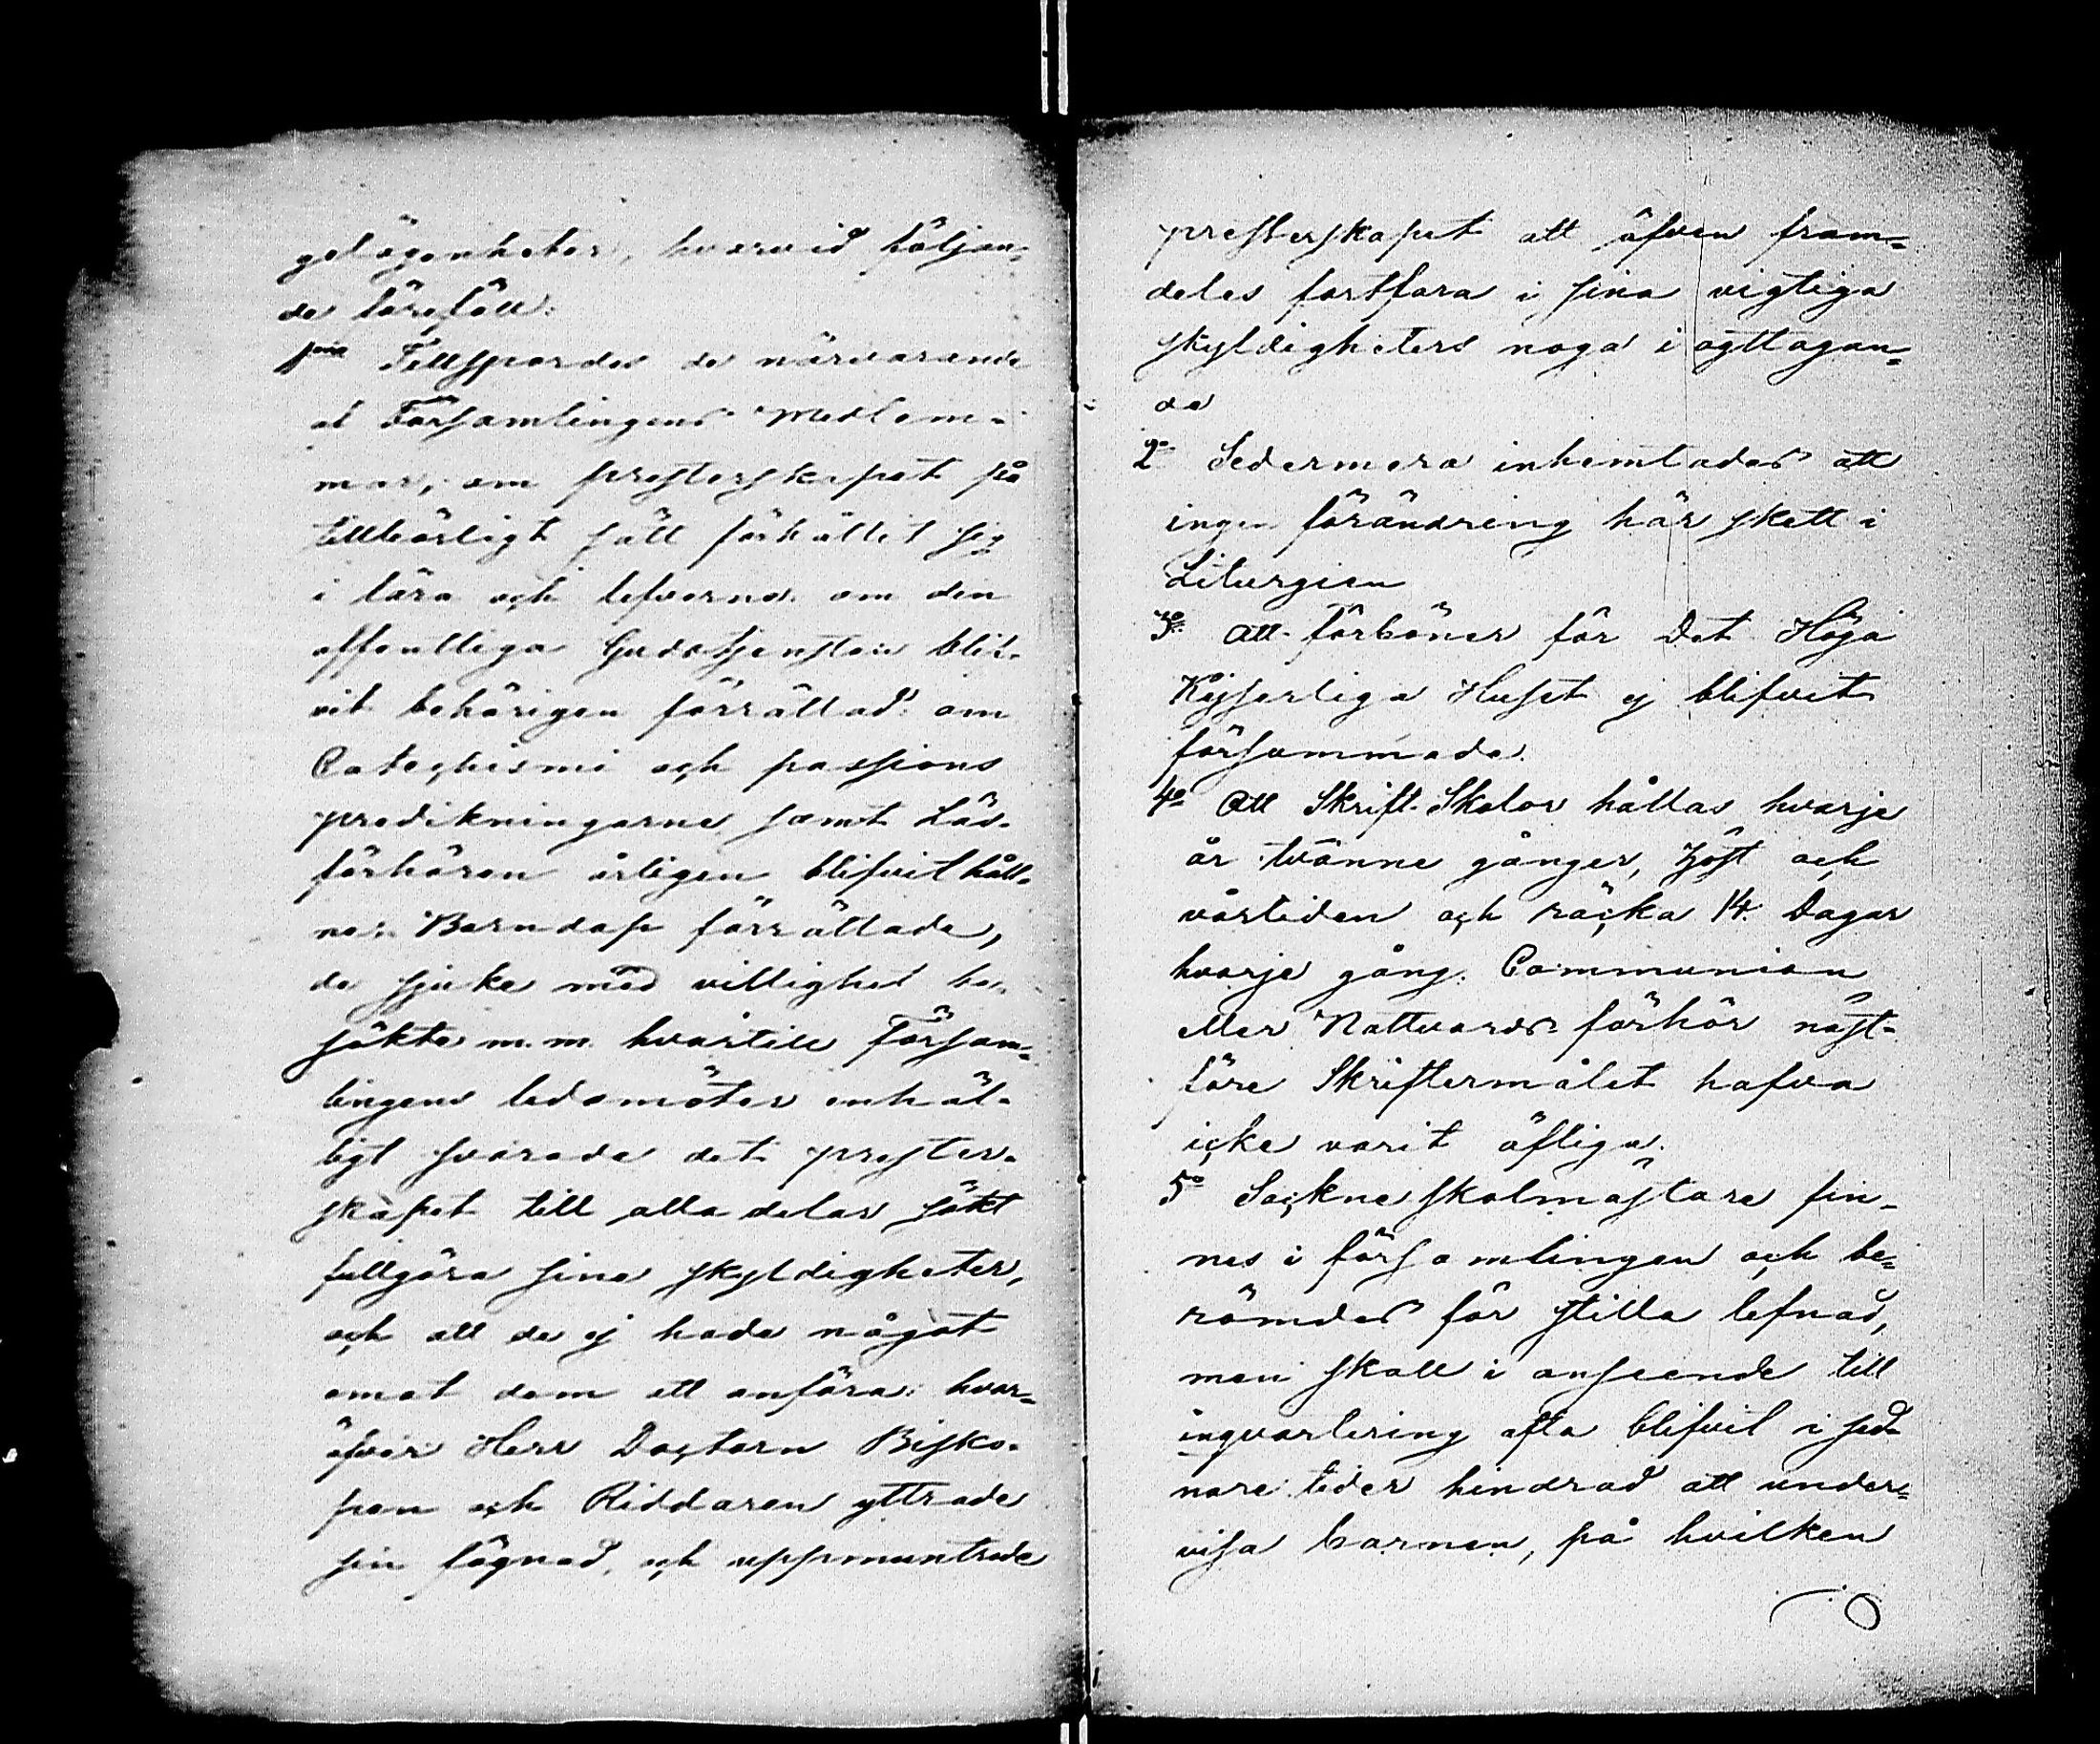 gelägenheter, hvarvid följan-
de föreföll:
1mo Tillspordes de närvarande
af Församlingens Medlem-
mar, om presterskapet på
tillbörligt sätt förhållit sig
i lära och lefverne: om den
offentliga Gudstjensten blif-
vit behörigen förrättad: om
Catechismi och passions
predikningarne samt Läs-
förhören årligen blifvit håll-
na: Barndop förrättade,
de sjuke med villighet be-
sökte m.m. hvartill Försam-
lingens ledamöter enhäl-
ligt svarade det prester-
skapet till alla delar sökt
fullgöra sina skyldigheter,
och att de ej hade något
emot dem att anföra: hvar-
öfver Herr Doctorn Bisko-
pen och Riddaren yttrade
sin fägnad, och uppmuntrade
presterskapet att äfven fram-
deles fortfara i sina vigtiga
skyldigheters noga i agttagan-
de
2o Sedermera inhemtades att
ingen förändring här skett i
Liturgien
3o Att förböner för Det Höga
Kejserliga Huset ej blifvit
försummade.
4o Att Skrift-Skolor hållas hvarje
år tvänne gånger, höst och
vårtiden och räcka 14. Dagar
hvarje gång. Communion
eller Nattvards-förhör näst-
före Skriftermålet hafva
icke varit öfliga.
5o Sockneskolmästare fin-
nes i församlingen och be-
römdes för stilla lefnad,
men skall i anseende till
inqvartering ofta blifvit i sed-
nare tider hindrad att under-
visa barnen, på hvilken